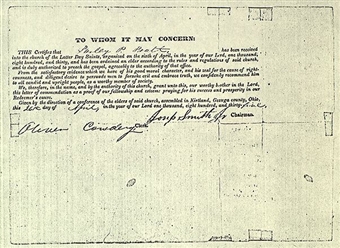 TO WHOM IT MAY CONCERN:
THIS Certifies that has been received
into the church of the Latter Day Saints, organized on the sixth of April, in the year of our Lord, one thousand,
eight hundred, and thirty, and has been ordained an elder according to the rules and regulations of said church,
and is duly authorized to preach the gospel, agreeably to the authority of that office.
From the satisfactory evidence which we have of his good moral character, and his zeal for the cause of right-
eousness, and diligent desire to persuade men to forsake evil and embrace truth, we confidently recommend him
to all candid and upright people, as a worthy member of society.
We, therefore, in the name, and by the authority of this church, grant unto this, our worthy brother in the Lord,
this letter of commendation as a proof of our fellowship and esteem: praying for his success and prosperity in our
Redeemer's cause.
Given by the direction of a conference of the elders of said church, assembled in Kirtland, Geauga county, Ohio,
the day of April, in the year of our Lord one thousand, eight hundred, and thirty
Joseph Smith Jr Chairman.
Oliver Cowdery Clerk